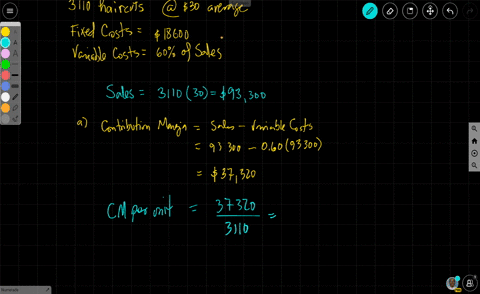 3110 haircuts @ $30 average
Fixed Costs = $18600
Variable Costs = 60% of Sales
Sales = 3110 (30) = $93,300
a) Contribution Margin = Sales - Variable Costs
= 93 300 - 0.60 (93300)
= $37,320
CM per unit = 37320
3110 =